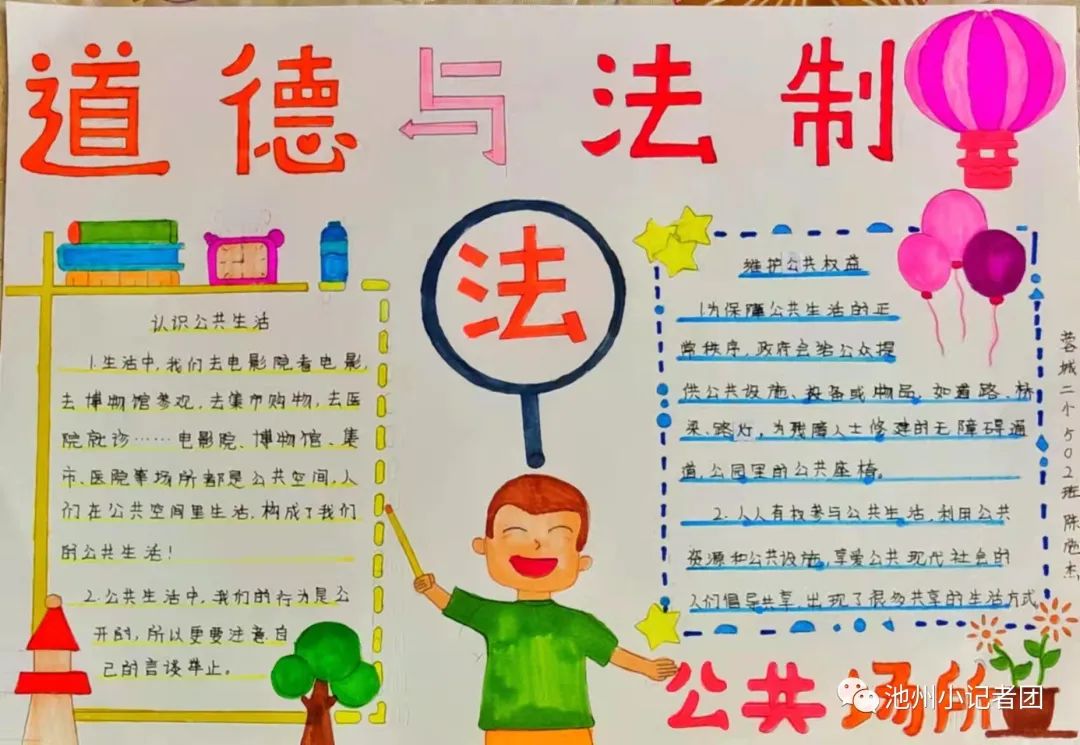 道德与法制
认识公共生活
1.生活中,我们去电影院看电影,
去博物馆参观,去集市购物,去医
院就诊……电影院、博物馆、集
市、医院等场所都是公共空间,人
们在公共空间里生活,构成了我们
的公共生活!
2.公共生活中,我们的行为是公
开的,所以更要注意自
己的言谈举止。
法
维护公共权益
1.为保障公共生活的正
常秩序,政府会给公众提
供公共设施、设备或物品,如道路、桥
梁、路灯,为残障人士修建的无障碍通
道,公园里的公共座椅。
2.人人有权参与公共生活,利用公共
资源和公共设施,享受公共现代社会的
人们倡导共享,出现了很多共享的生活方式
蓉城二小502班 陈 杰
公共场所
池州小记者团